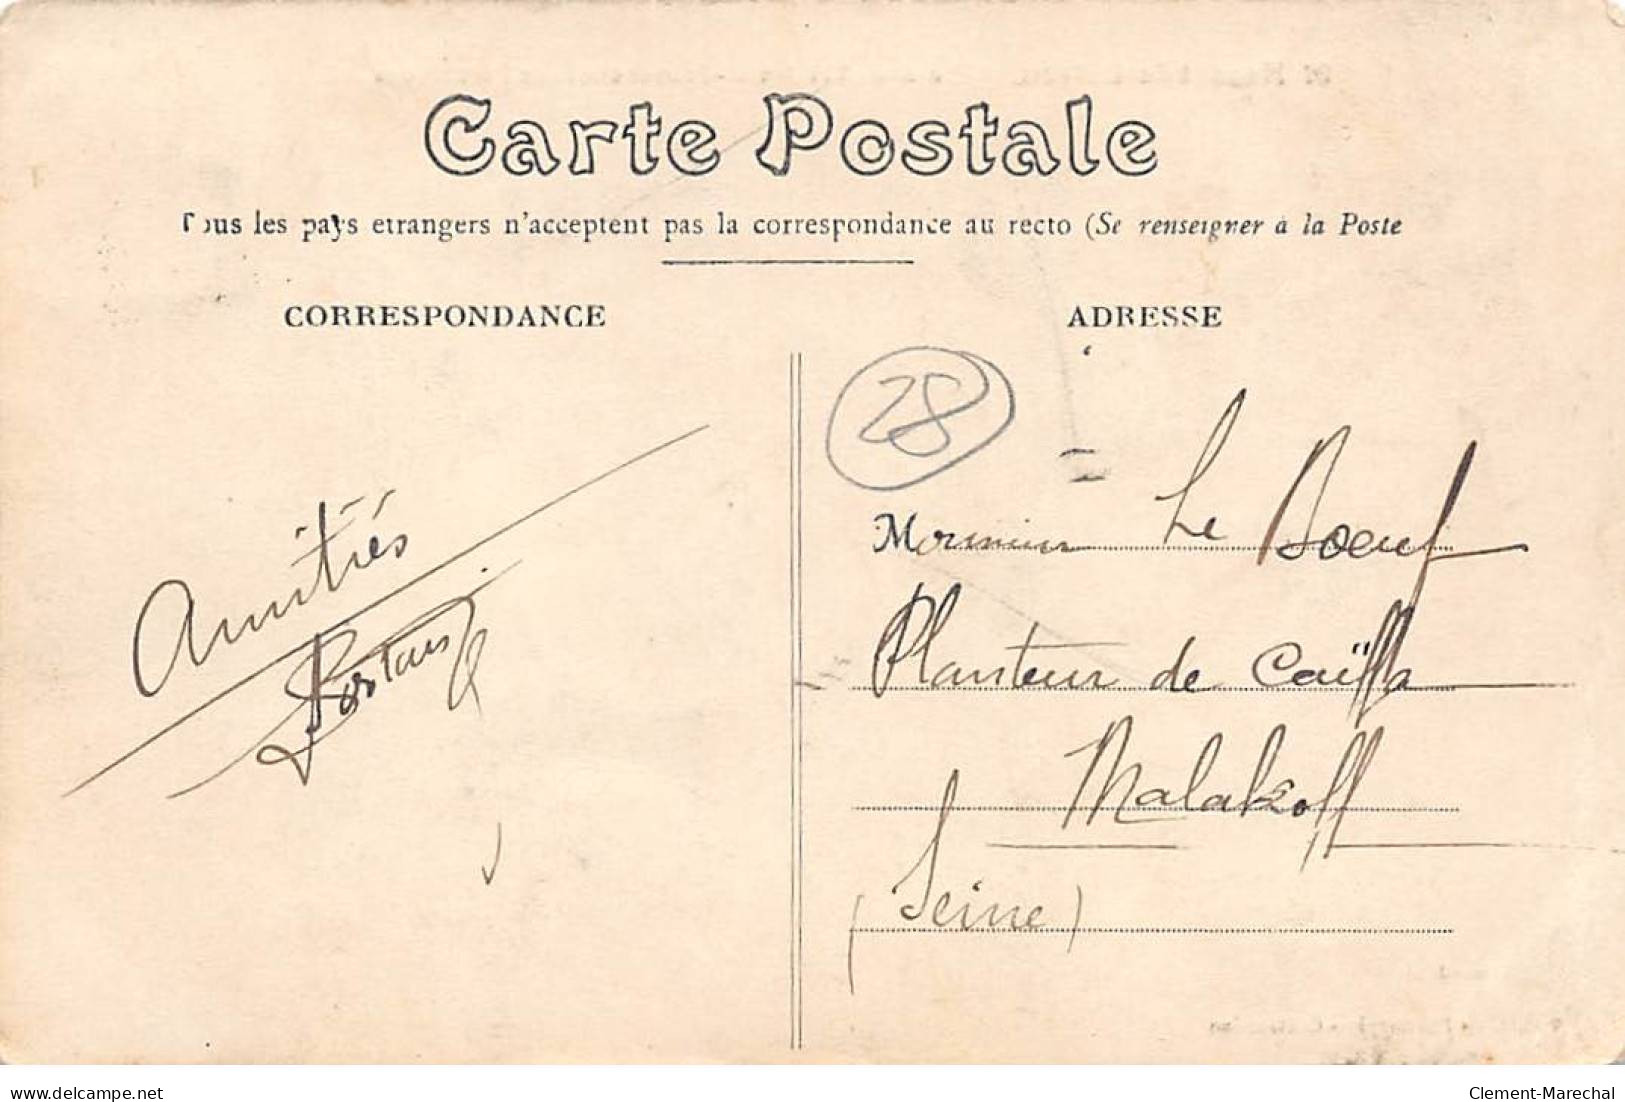 Carte Postale
Tous les pays etrangers n'acceptent pas la correspondance au recto (Se renseigner à la Poste
CORRESPONDANCE
ADRESSE
28
Amitiés
Monsieur Le Boeuf
Planteur de
Malakoff
(Seine)
delcampe.net
Clement-Marechal